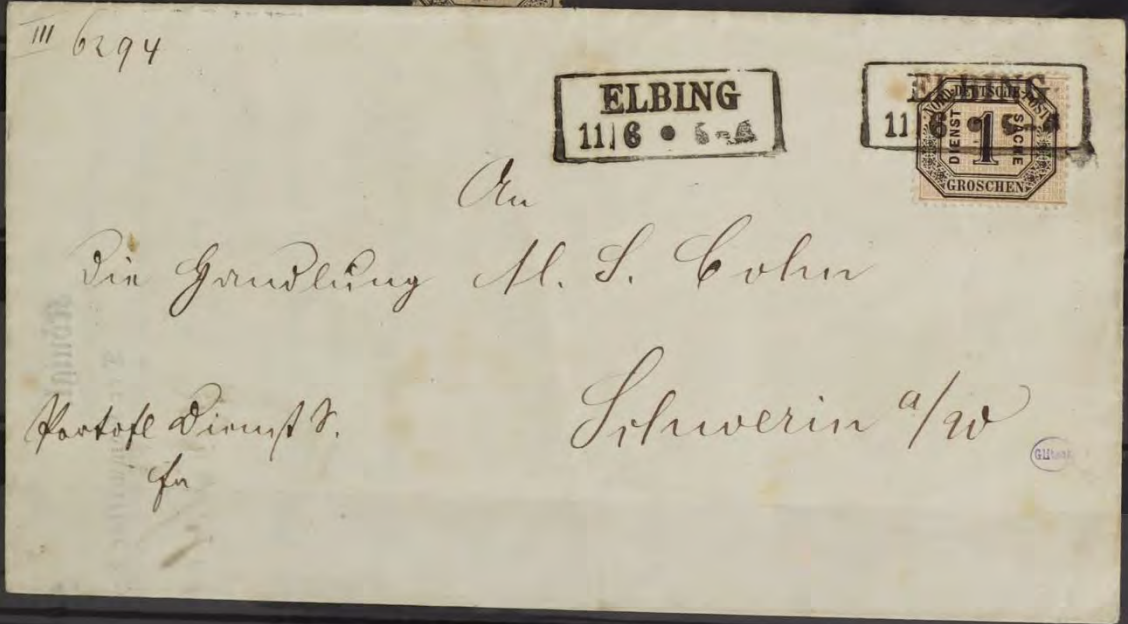 III 6294
ELBING
11|6
ELBING
11 6
NORDDEUTSCHE POST
DIENST SACHE
1
GROSCHEN
An
Die Handlung M. S. Cohn
Schwerin a/W
Portofl Dienst S.